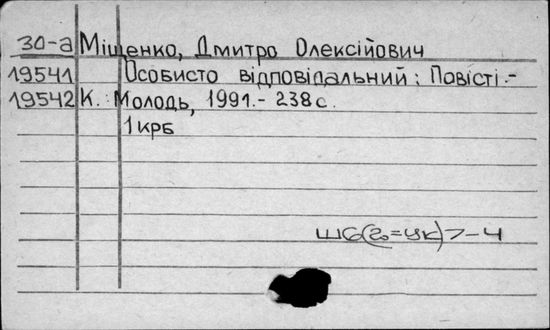 30-а Міщенко, Дмитро Олексійович
19541 Особисто відповідальний: Повісті.-
19542 К.: Молодь, 1991.- 238с.
1крб
Ш6(2=Ук)7-4